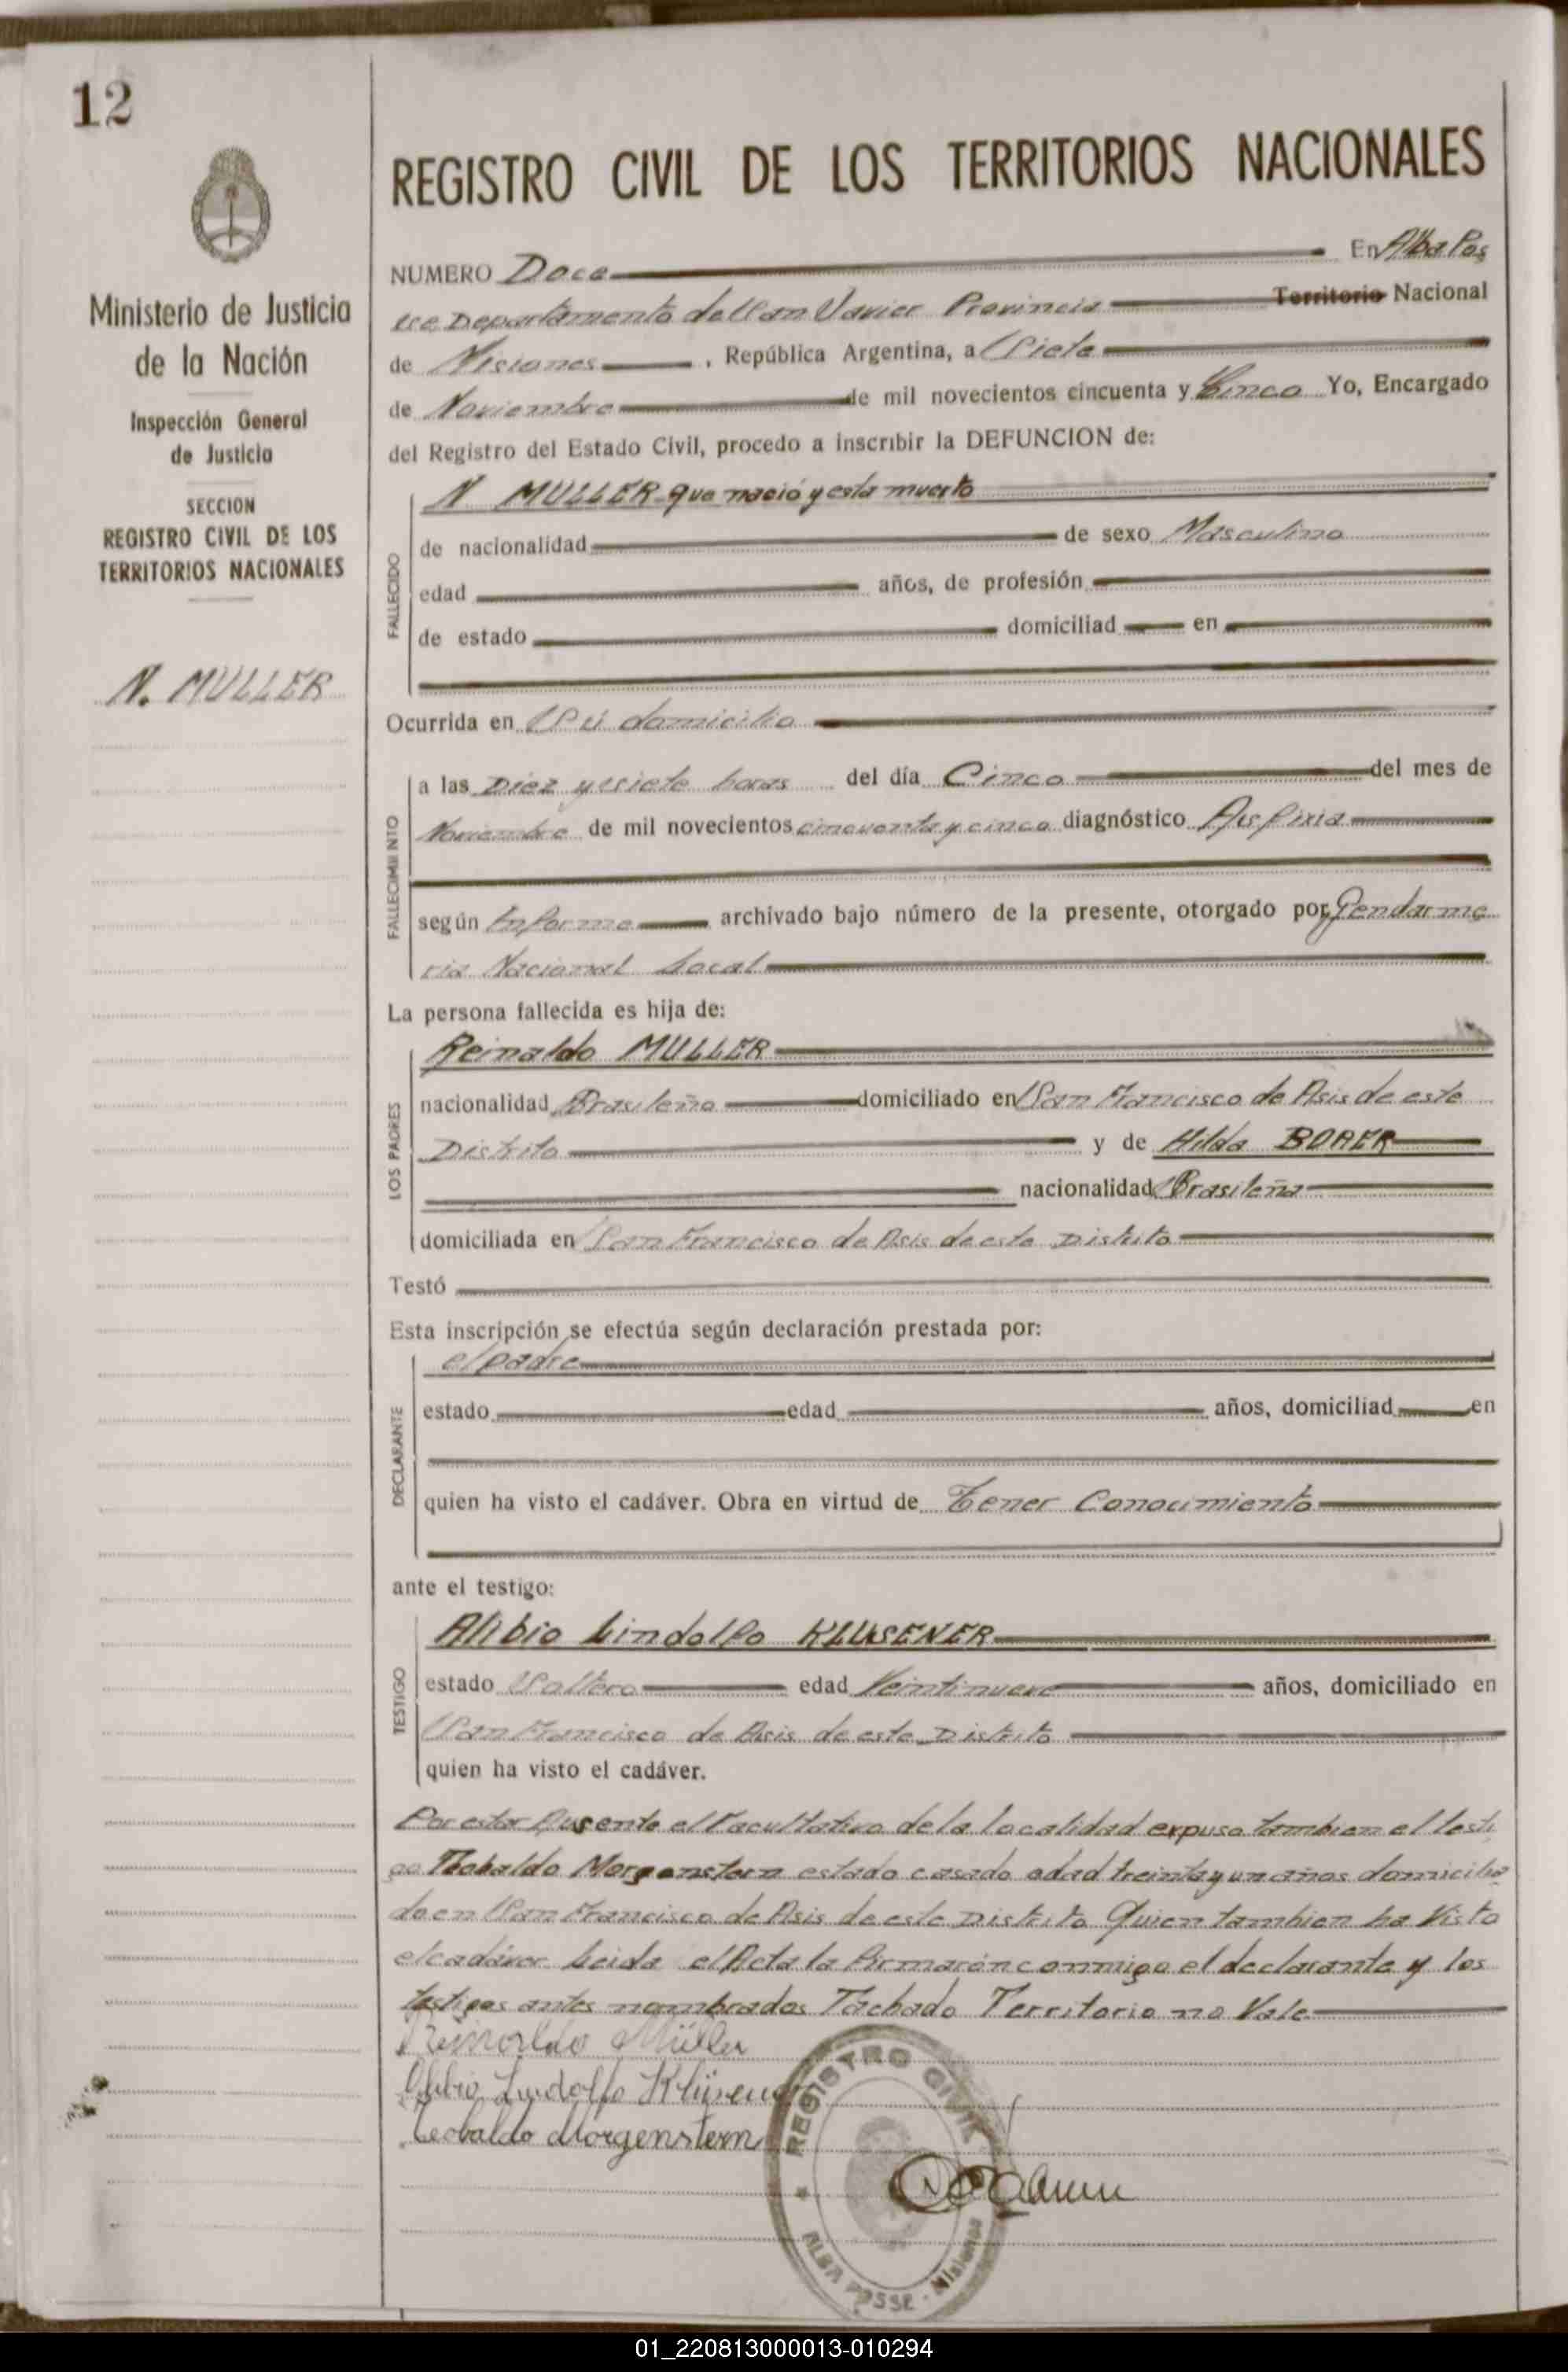 12
Ministerio de Justicia
de la Nación
Inspección General
de Justicia
SECCION
REGISTRO CIVIL DE LOS
TERRITORIOS NACIONALES
N. MULLER
REGISTRO CIVIL DE LOS TERRITORIOS NACIONALES
NUMERO Doce En Alba Pos
se Departamento de San Javier Provincia Territorio Nacional
de Misiones, República Argentina, a Siete
de Noviembre de mil novecientos cincuenta y Cinco Yo, Encargado
del Registro del Estado Civil, procedo a inscribir la DEFUNCION de:
N MULLER que nació y esta muerto
FALLECIDO
de nacionalidad de sexo Masculino
edad años, de profesión
de estado domiciliad en
Ocurrida en Sú domicilio
FALLECIMIENTO
a las Diez y siete horas del día Cinco del mes de
Noviembre de mil novecientos cincuenta y cinco diagnóstico Asfixia
según Informe archivado bajo número de la presente, otorgado por Gendarme
ria Nacional Local
La persona fallecida es hija de:
Reinaldo MULLER
LOS PADRES
nacionalidad Brasileña domiciliado en San Francisco de Asis de este
Distrito y de Hilda BORER
nacionalidad Brasileña
domiciliada en San Francisco de Asis de este Distrito
Testó
Esta inscripción se efectúa según declaración prestada por:
el padre
DECLARANTE
estado edad años, domiciliad en
quien ha visto el cadáver. Obra en virtud de Tener Conocimiento
ante el testigo:
Alibio Lindolfo KLUSENER
TESTIGO
estado Soltero edad Veintinueve años, domiciliado en
San Francisco de Asis de este Distrito
quien ha visto el cadáver.
Por estar Ausente el Facultativo de la localidad expuso tambien el testi
go Teobaldo Morgenstern estado casado edad treinta y un años domicilia
do en San Francisco de Asis de este Distrito Quien tambien ha Visto
el cadáver Leida el Acta la firmarón conmigo el declarante y los
testigos antes nombrados Tachado Territorio no Vale
Reinoldo Müller
Alibio Lindolfo Klüsener
Teobaldo Morgenstern
REGISTRO CIVIL
ALBA POSSE - Misiones
01_220813000013-010294